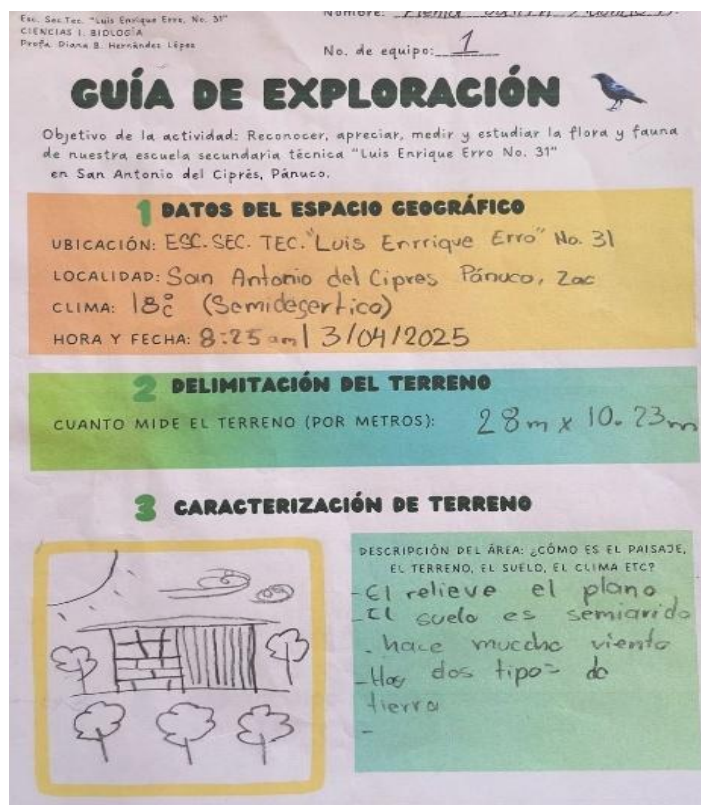 Esc. Sec. Tec. "Luis Enrique Erro, No. 31"
CIENCIAS I. BIOLOGÍA
Profa. Diana B. Hernández López
Nombre:
No. de equipo: 1
GUÍA DE EXPLORACIÓN
Objetivo de la actividad: Reconocer, apreciar, medir y estudiar la flora y fauna
de nuestra escuela secundaria técnica "Luis Enrique Erro No. 31"
en San Antonio del Ciprés, Pánuco.
1 DATOS DEL ESPACIO GEOGRÁFICO
UBICACIÓN: ESC. SEC. TEC. "Luis Enrrique Erro" No. 31
LOCALIDAD: San Antonio del Cipres Pánuco, Zac
CLIMA: 18°C (Semidesertico)
HORA Y FECHA: 8:25 am | 3/04/2025
2 DELIMITACIÓN DEL TERRENO
CUANTO MIDE EL TERRENO (POR METROS): 28m x 10.23m
3 CARACTERIZACIÓN DE TERRENO
DESCRIPCIÓN DEL ÁREA: ¿CÓMO ES EL PAISAJE,
EL TERRENO, EL SUELO, EL CLIMA ETC?
- El relieve el plano
- El suelo es semiarido
- hace muccho viento
- Hay dos tipos de
tierra
-